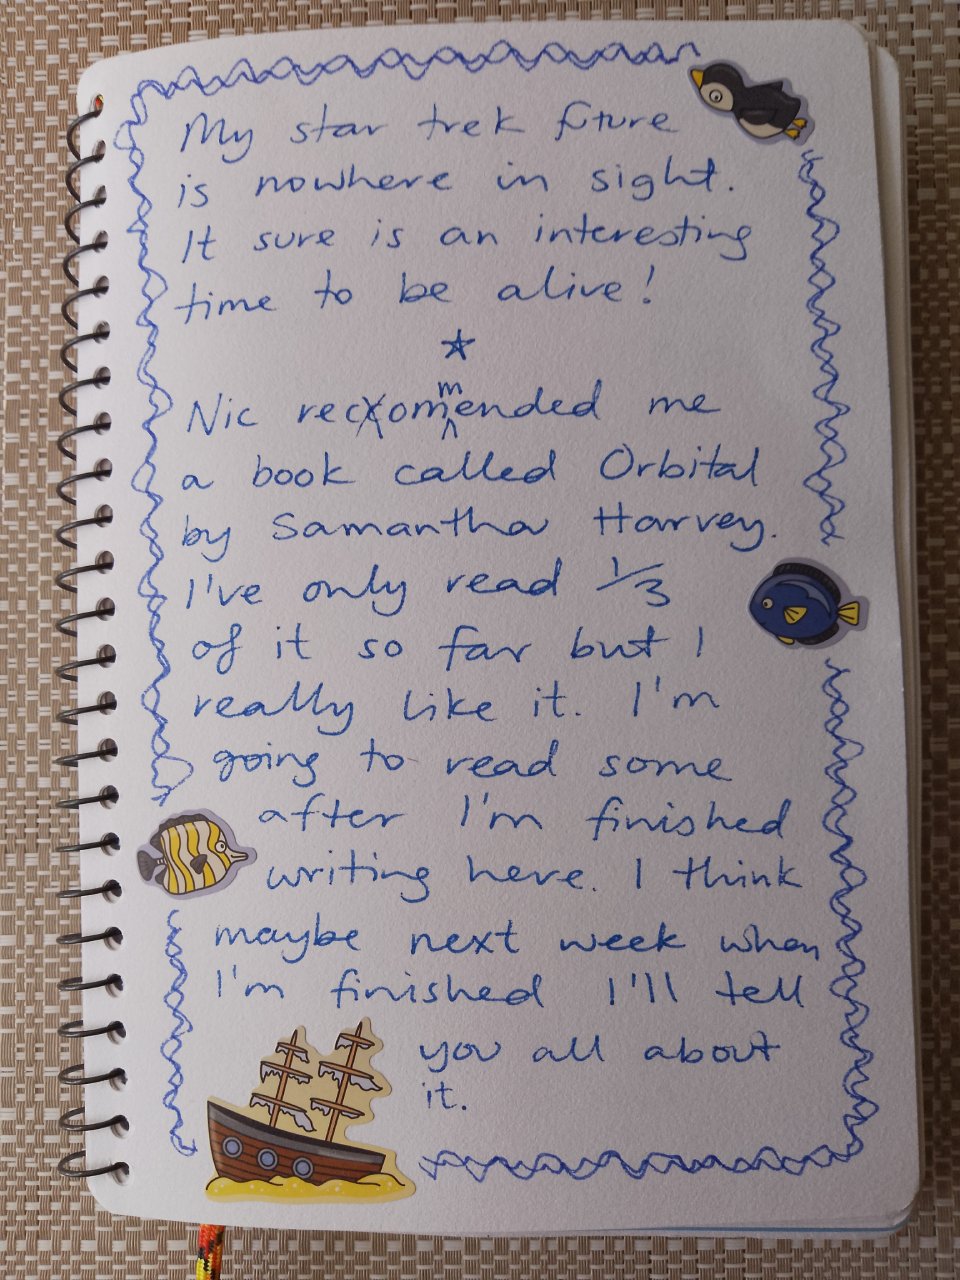 My star trek future
is nowhere in sight.
It sure is an interesting
time to be alive!
Nic recommended me
a book called Orbital
by Samantha Harvey.
I've only read 1/3
of it so far but I
really like it. I'm
going to read some
after I'm finished
writing here. I think
maybe next week when
I'm finished I'll tell
you all about
it.